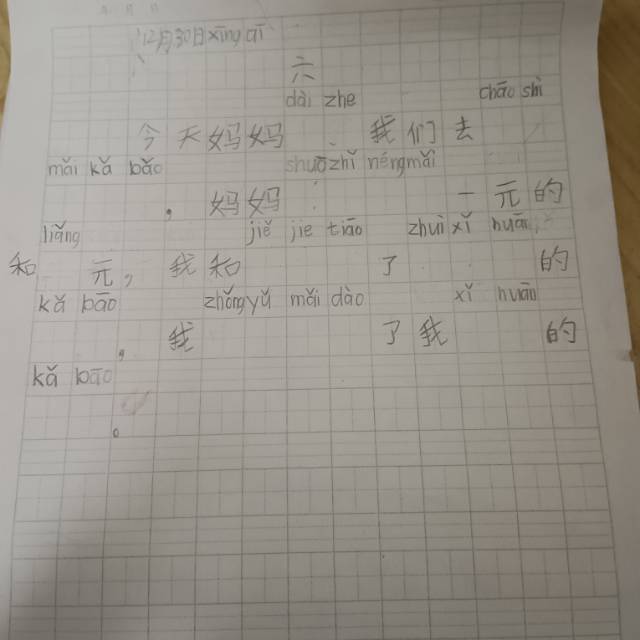 12月30日xīng qī
六
dài zhe chāo shì
今天妈妈 我们去
mǎi kǎ bǎo shuō zhǐ néng mǎi
。 妈妈: 一元的
liǎng jiě jie tiāo zhuì xǐ huān
和 元，我和 了 的
kǎ bāo zhōng yǔ mǎi dào xǐ huān
，我 了我 的
kǎ bāo
。